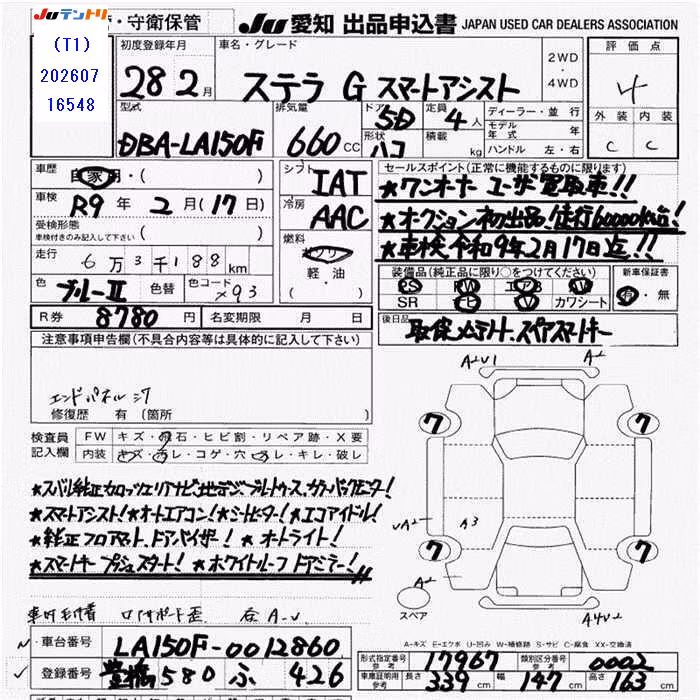 JUテントリ
(T1)
202607
16548
・守衛保管
JU 愛知 出品申込書 JAPAN USED CAR DEALERS ASSOCIATION
初度登録年月 車名・グレード 2WD・4WD 評価点
28 2月 ステラ G スマートアシスト 4
型式 排気量 ドア 定員 ディーラー・並行 外装 内装
DBA-LA150F 660cc 5D 4人 モデル年式 年
形状 ハコ 積載 kg ハンドル 左・右 C C
車歴 自家用・( ) シフト IAT セールスポイント(正常に機能するものに限ります)
車検 R9年2月(17日) 冷房 AAC ★ワンオーナー ユーザー買取車!!
受検形態 車検付きのみ記入して下さい ( ) ★オークション初出品!走行60000km台!
走行 6万3千188km 燃料 ガソリン 軽・油 ★車検令和9年2月17日迄!!
色 ブルーII 色替 色コード X93 装備品(純正品に限り○をつけてください) 新車保証書
PS PW エアB AW 有・無
SR ナビ TV カワシート
R券 8780円 名変期限 月 日 後日品 取保、メンテノート、スペアスマートキー
注意事項申告欄(不具合内容等は具体的に記入して下さい)
A2U1 A2
エンドパネルシワ
修復歴 有(箇所 )
7 7
検査員記入欄 FW キズ・飛石・ヒビ割・リペア跡・X要
内装 キズ・汚レ・コゲ・穴・スレ・キレ・破レ
★スバル純正カロッツェリアナビ、地デジ、ブルートゥース、カラーバックモニター!
★スマートアシスト!★オートエアコン!★シートヒーター!★エコアイドル!
UA2 A3
★純正フロアマット、ドアバイザー! ★オートライト!
7 7
★スマートキープッシュスタート! ★ホワイトルーフ ドアミラー!!
A2 A2
スペア A4U2
A-キズ E-エクボ U-凹み W-補修跡 S-サビ C-腐食 XX-交換済
車台番号 LA150F-0012860 形式指定番号 参考 17967 類別区分番号 参考 0002
登録番号 豊橋 580 ふ 426 車庫証明用 参考 長さ 339cm 幅 147cm 高さ 163cm